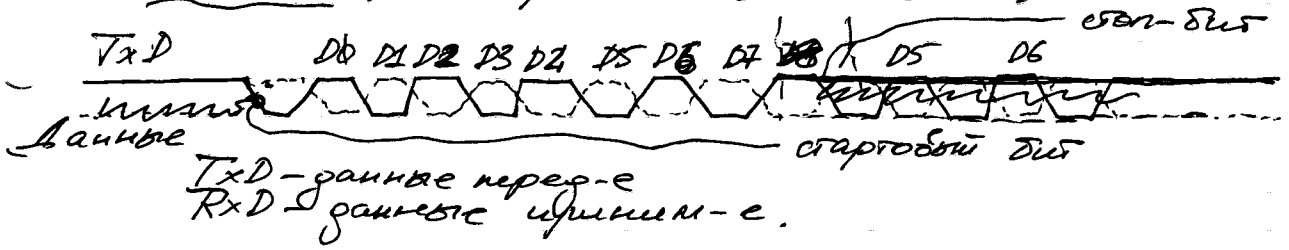 стоп-бит
TxD D0 D1 D2 D3 D4 D5 D6 D7 D5 D6
Данные
стартовый бит
TxD - данные перед-е
RxD - данные приним-е.